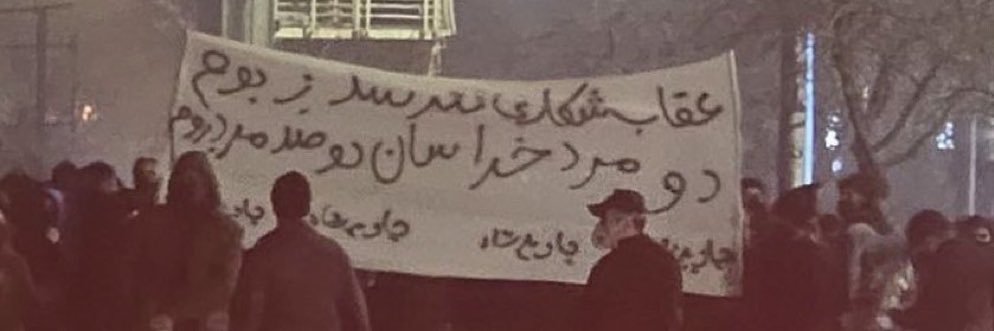 عقاب شکاری نترسد ز بوم
دو مرد خراسان دو صد مرد روم
جاوید شاه جاوید شاه جاوید شاه جاوید